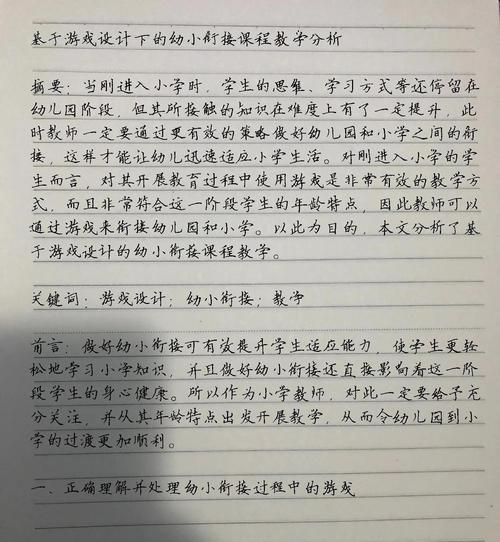 基于游戏设计下的幼小衔接课程教学分析
摘要：当刚进入小学时，学生的思维、学习方式等还停留在
幼儿园阶段，但其所接触的知识在难度上有了一定提升，此
时教师一定要通过更有效的策略做好幼儿园和小学之间的衔
接，这样才能让幼儿迅速适应小学生活。对刚进入小学的学
生而言，对其开展教育过程中使用游戏是非常有效的教学方
式，而且非常符合这一阶段学生的年龄特点，因此教师可以
通过游戏来衔接幼儿园和小学。以此为目的，本文分析了基
于游戏设计的幼小衔接课程教学。
关键词：游戏设计；幼小衔接；教学
前言：做好幼小衔接可有效提升学生适应能力，使学生更轻
松地学习小学知识，并且做好幼小衔接还直接影响着这一阶
段学生的身心健康。所以作为小学教师，对此一定要给予充
分关注，并从其年龄特点出发开展教学，从而令幼儿园到小
学的过渡更加顺利。
一、正确理解并处理幼小衔接过程中的游戏